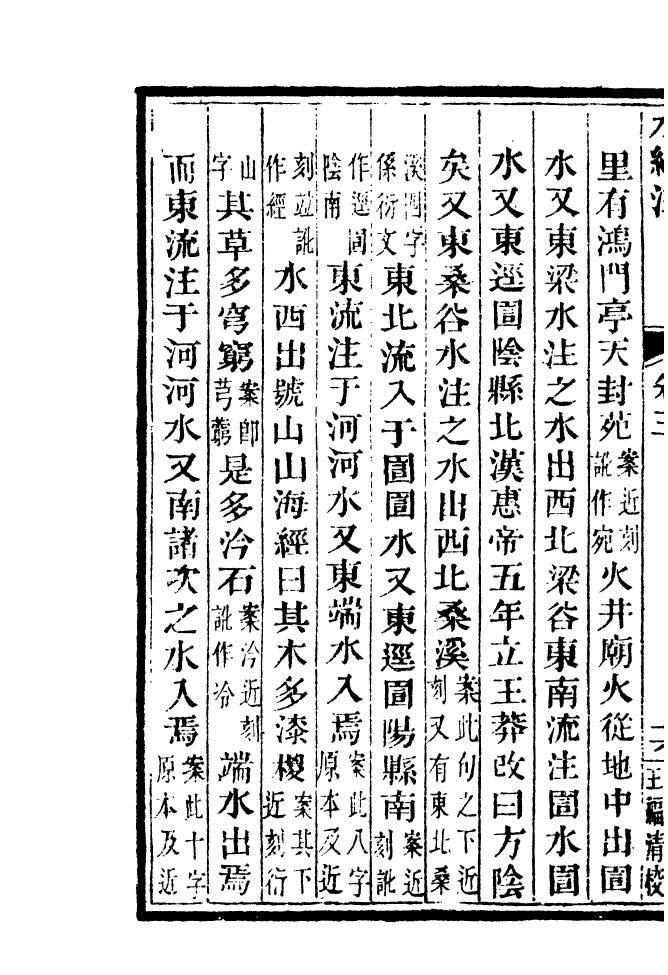 水經注 卷三 王福清校
里有鴻門亭天封苑案近刻訛作宛火井廟火從地中出圁
水又東梁水注之水出西北梁谷東南流注圁水圁
水又東逕圁陰縣北漢惠帝五年立王莽改曰方陰
矣又東桑谷水注之水出西北桑溪案此句之下近刻又有東北桑
溪澗字係衍文東北流入于圁圁水又東逕圁陽縣南案近刻訛
作逕圁陰南東流注于河河水又東端水入焉案此八字原本及近
刻竝訛作經水西出號山山海經曰其木多漆椶案其下近刻衍
山字其草多穹窮案卽芎藭是多汵石案汵近刻訛作冷端水出焉
而東流注于河河水又南諸次之水入焉案此十字原本及近